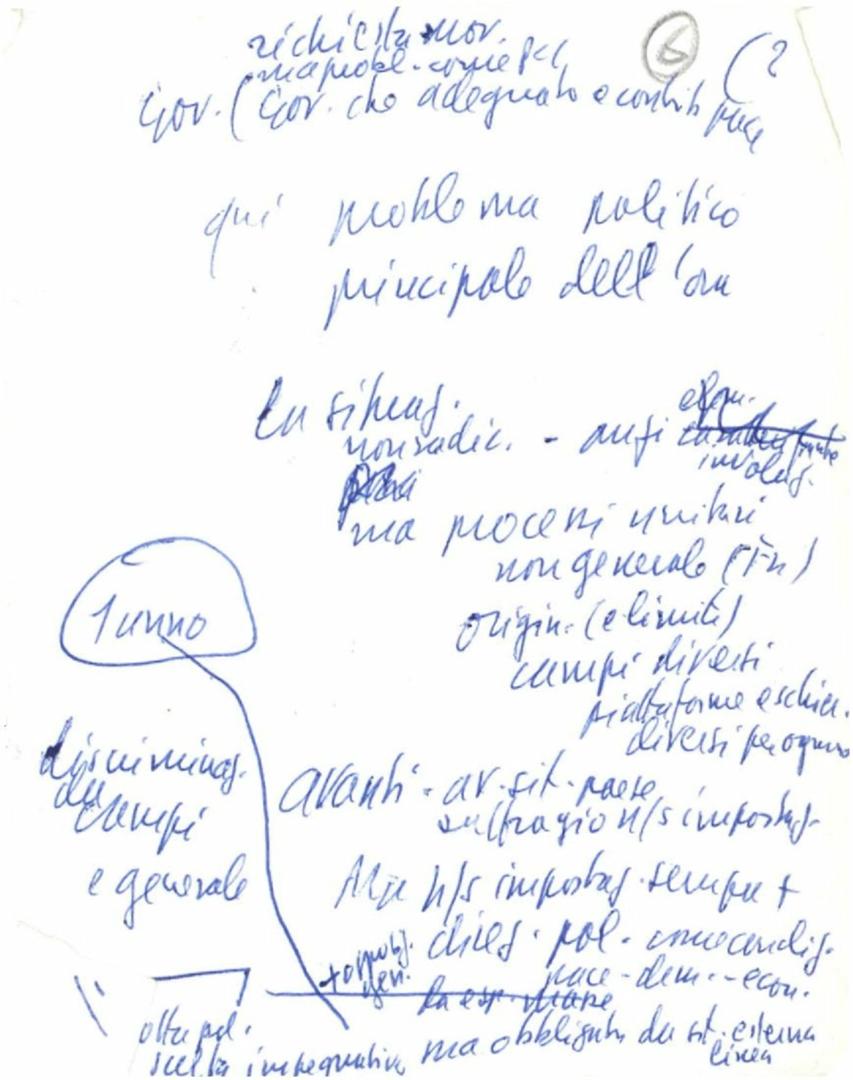 richiesta mov.
ma probl. come
6
(?
Gov. (Gov. che adeguato e contrib pace
qui problema politico
principale dell'ora
La situaz.
non radic. - anzi
involuz.
ma processi unitari
non generale
origin. (e limiti)
campi diversi
piattaforme e schier.
diversi per ognuno
1 anno
discriminaz.
da
campi
e generale
avanti - av. sit. paese
suffragio n/s impostaz.
Ma n/s impostaz. sempre +
direz. pol. come condiz.
pace - dem. - econ.
+ ogni probl.
gen.
ma obbligata da sit. esterna
scelta impegnativa
linea